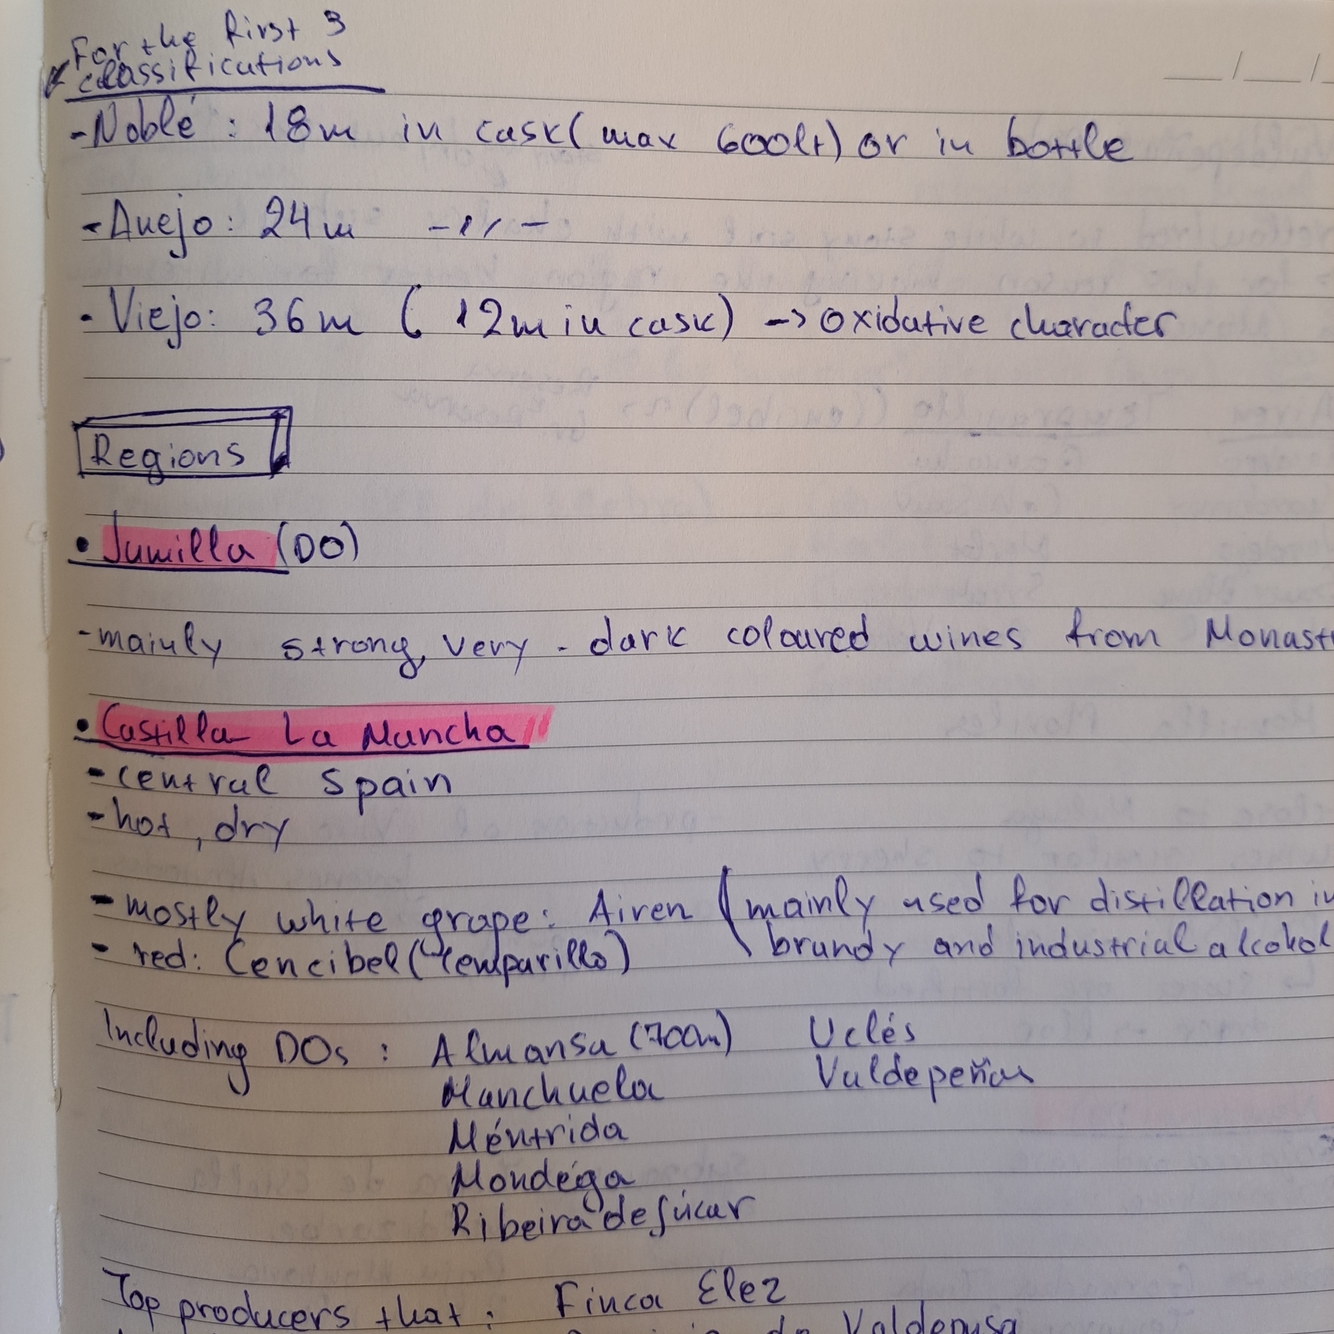 For the first 3
classifications
- Noblé : 18m in cask (max 600lt) or in bottle
- Anejo : 24m -"-
- Viejo : 36m ( 12m in cask) -> oxidative character
Regions
• Jumilla (DO)
- mainly strong, very - dark coloured wines from Monast
• Castilla La Mancha
- central Spain
- hot, dry
- mostly white grape : Airen (mainly used for distillation in
- red : Cencibel (Temparillo) brandy and industrial alcohol
Including DOs : Almansa (700m) Uclés
Manchuela Valdepeñas
Méntrida
Mondéga
Ribeira de Júcar
Top producers that : Finca Elez
de Valdepusa